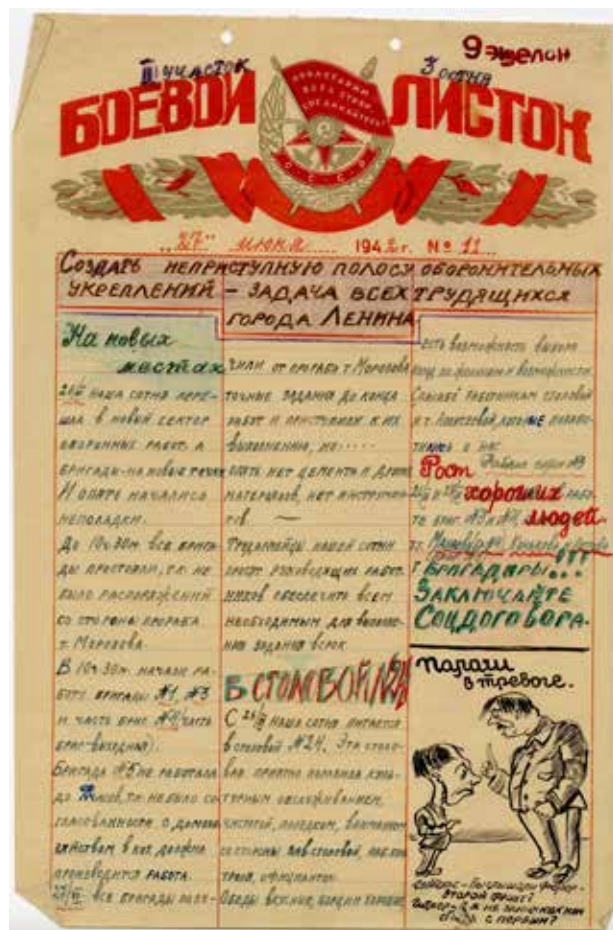 9 эшелон
III участок
3 сотня
БОЕВОЙ ЛИСТОК
ПРОЛЕТАРИИ
ВСЕХ СТРАН,
СОЕДИНЯЙТЕСЬ!
СССР
„27" июня 1942 г. № 11
Создать неприступную полосу оборонительных
укреплений – задача всех трудящихся
города Ленина
На новых
местах
наша сотня пере-
шла в новый сектор
оборонных работ, а
бригады – на новые точки
И опять начались
неполадки.
До 10ч 30м. все брига-
ды простояли, т.к. не
было распоряжений
со стороны прораба
т. Морозова.
В 10ч. 30м. начали ра-
боту бригады №1, №3
и часть бриг №4 (часть
бриг-выходная).
Бригада №5 не работала
до часов, т.к. не было со-
гласованности о домохо-
зяйством в коем должна
производится работа.
27/VI все бригады полу-
чили от прораба т. Морозова
точные задания до конца
работ и приступили к их
выполнению, но.....
опять нет цемента и других
материалов, нет инструмен-
тов. —
Трудармейцы нашей сотни
просят руководящих работ-
ников обеспечить всем
необходимым для выполне-
ния задания в срок
В СТОЛОВОЙ №24
С наша сотня питается
в столовой №24. Эта столо-
вая приятно поразила куль-
турным обслуживанием,
чистотой, порядком, вниманием
со стороны зав. столовой,
официанток
Обеды вкусные, порции хорошие,
есть возможность выбора
и возможности.
Спасибо работникам столовой
и т. которые позабо-
тились о нас.
Рост
хороших
людей
в рабо-
те бриг. №3 и №4,
т.т.
Бригадиры!!!
Заключайте
Соцдоговора.
Паяцы
в тревоге.
Вы слышали фюрер –
второй фронт?
Гитлер – А я не знаю как нам
быть с первым?